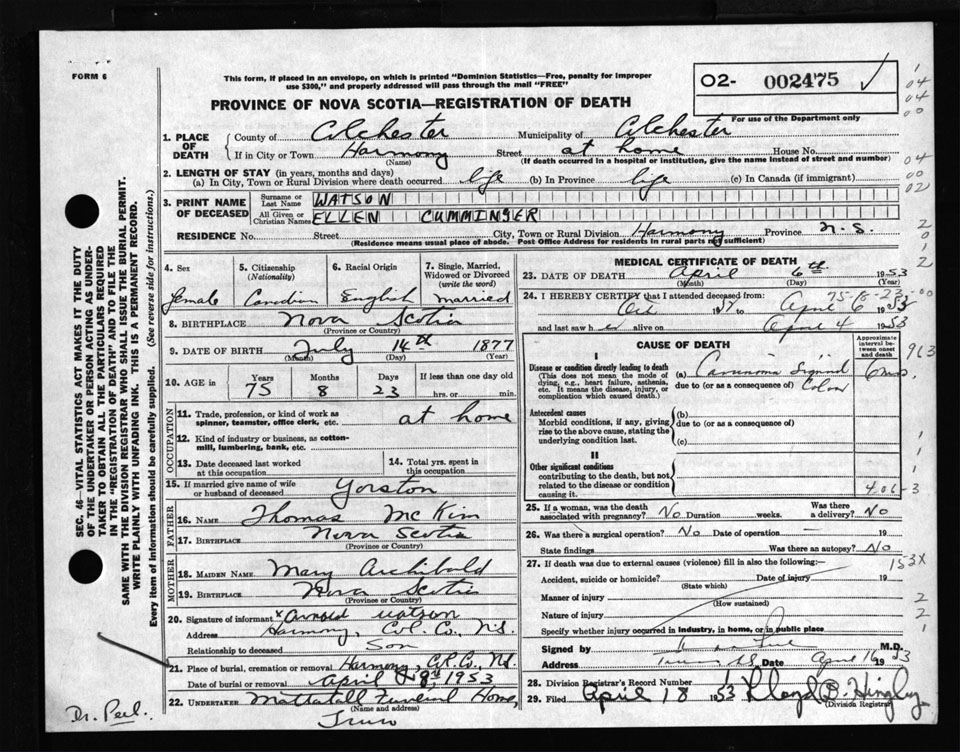 FORM 6
This form, if placed in an envelope, on which is printed "Dominion Statistics—Free, penalty for improper
use $300," and properly addressed will pass through the mail "FREE"
O2- 002475 ✓
PROVINCE OF NOVA SCOTIA—REGISTRATION OF DEATH
For use of the Department only
1. PLACE OF DEATH County of Colchester Municipality of Colchester
If in City or Town Harmony Street at home House No.
(Name) (If death occurred in a hospital or institution, give the name instead of street and number)
2. LENGTH OF STAY (in years, months and days)
(a) In City, Town or Rural Division where death occurred life (b) In Province life (c) In Canada (if immigrant)
3. PRINT NAME OF DECEASED Surname or Last Name WATSON
All Given or Christian Names ELLEN CUMMINGER
RESIDENCE No. Street City, Town or Rural Division Harmony Province N.S.
(Residence means usual place of abode. Post Office Address for residents in rural parts not sufficient)
4. Sex female
5. Citizenship (Nationality) Canadian
6. Racial Origin English
7. Single, Married, Widowed or Divorced (write the word) married
8. BIRTHPLACE Nova Scotia
(Province or Country)
9. DATE OF BIRTH July 14th 1877
(Month) (Day) (Year)
10. AGE in Years Months Days If less than one day old
75 8 23 hrs. or min.
OCCUPATION
11. Trade, profession, or kind of work as spinner, teamster, office clerk, etc. at home
12. Kind of industry or business, as cotton-mill, lumbering, bank, etc.
13. Date deceased last worked at this occupation
14. Total yrs. spent in this occupation
15. If married give name of wife or husband of deceased Yorston
FATHER
16. NAME Thomas McKim
17. BIRTHPLACE Nova Scotia
(Province or Country)
MOTHER
18. MAIDEN NAME Mary Archibald
19. BIRTHPLACE Nova Scotia
(Province or Country)
20. Signature of informant x Arnold Watson
Address Harmony, Col. Co., N.S.
Relationship to deceased Son
21. Place of burial, cremation or removal Harmony, Col. Co., N.S.
Date of burial or removal April 1953
22. UNDERTAKER Mattatall Funeral Home,
(Name and address)
Truro
MEDICAL CERTIFICATE OF DEATH
23. DATE OF DEATH April 6th 1953
(Month) (Day) (Year)
24. I HEREBY CERTIFY that I attended deceased from:
Oct 19 to April 6 1953
and last saw her alive on April 4 1953
CAUSE OF DEATH
Approximate interval between onset and death
I
Disease or condition directly leading to death
(This does not mean the mode of dying, e.g., heart failure, asthenia, etc. It means the disease, injury, or complication which caused death.)
(a) Carcinoma Sigmoid 6 mos.
due to (or as a consequence of) Colon
Antecedent causes
Morbid conditions, if any, giving rise to the above cause, stating the underlying condition last.
(b)
due to (or as a consequence of)
(c)
II
Other significant conditions
contributing to the death, but not related to the disease or condition causing it.
25. If a woman, was the death associated with pregnancy? No Duration weeks. Was there a delivery? No
26. Was there surgical operation? No Date of operation — 19
State findings Was there an autopsy? No
27. If death was due to external causes (violence) fill in also the following:
Accident, suicide or homicide? Date of injury 19
(State which)
Manner of injury
(How sustained)
Nature of injury
Specify whether injury occurred in industry, in home, or in public place
Signed by M.D.
Address Truro NS Date April 16 1953
28. Division Registrar's Record Number
29. Filed April 18 1953 Lloyd B. Hingley
(Division Registrar)
Dr. Peel.
SEC. 46—VITAL STATISTICS ACT MAKES IT THE DUTY
OF THE UNDERTAKER OR PERSON ACTING AS UNDER-
TAKER TO OBTAIN ALL THE PARTICULARS REQUIRED
IN THE "REGISTRATION OF DEATH" AND TO FILE THE
SAME WITH THE DIVISION REGISTRAR WHO SHALL ISSUE THE BURIAL PERMIT.
WRITE PLAINLY WITH UNFADING INK. THIS IS A PERMANENT RECORD.
Every item of information should be carefully supplied. (See reverse side for instructions.)